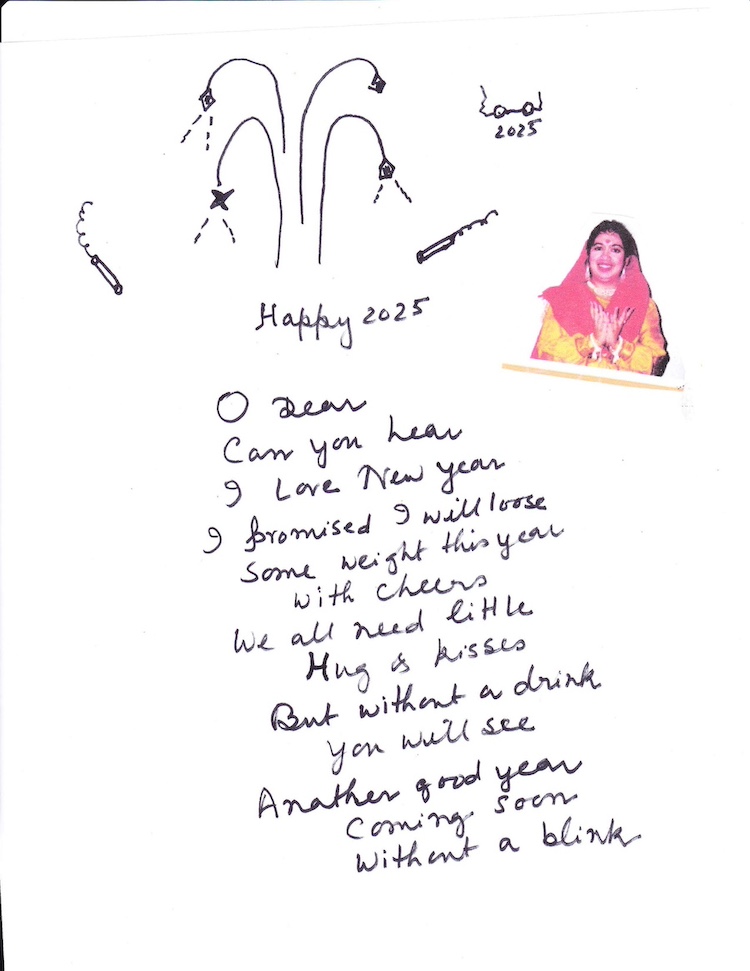 2025
Happy 2025
O Dear
Can you hear
I Love New year
I promised I will loose
Some weight this year
with cheers
We all need little
Hug & kisses
But without a drink
you will see
Anather good year
Coming soon
without a blink